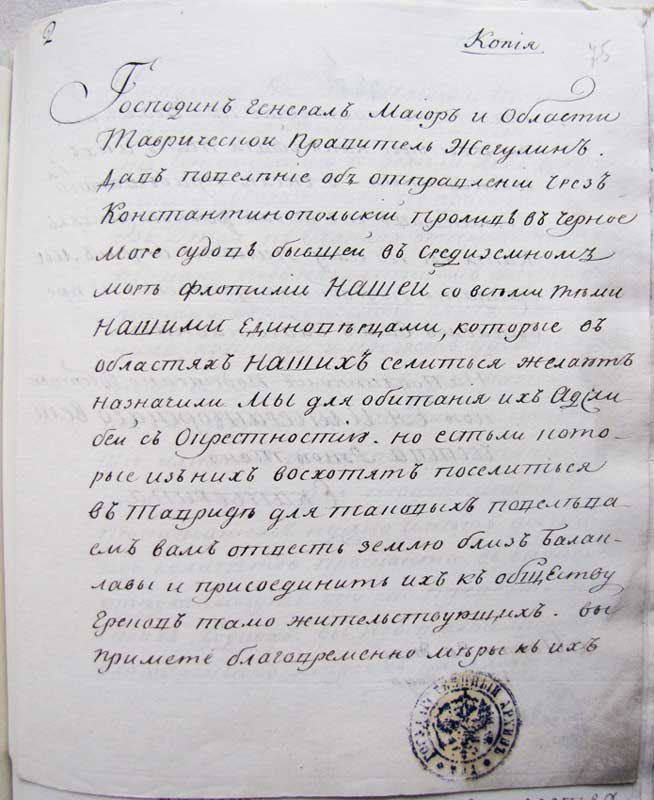 2
Копія
75
Господинъ Генералъ Маіоръ и Области
Таврической Правитель Жегулинъ.
Давъ повелѣніе объ отправленіи чрезъ
Константинопольскій проливъ въ Черное
море судовъ бывшей въ Средиземномъ
морѣ флотиліи НАШЕЙ со всѣми тѣми
НАШИМИ Единовѣрцами, которые въ
областяхъ НАШИХЪ селиться желаютъ
назначили МЫ для обитанія ихъ Аджи
бей съ Окрестностію. но естьли кото-
рые изъ нихъ восхотятъ поселиться
въ Тавридѣ для таковыхъ повелѣва-
емъ вамъ отвесть землю близъ Балак-
лавы и присоединить ихъ къ обществу
Грековъ тамо жительствующихъ. вы
примете благовременно мѣры къ ихъ
ГОСУДАРСТВЕННЫЙ АРХИВЪ